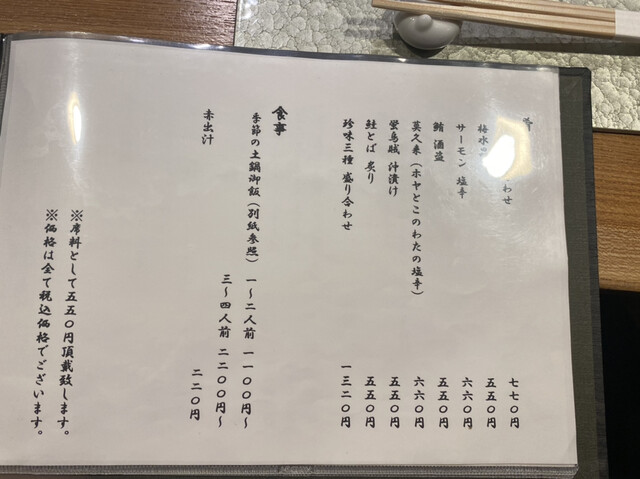 肴
わせ 七七〇円
梅水 五五〇円
サーモン 塩辛 六六〇円
鮪 酒盗 五五〇円
莫久来（ホヤとこのわたの塩辛） 六六〇円
螢烏賊 沖漬け 五五〇円
鮭とば 炙り 五五〇円
珍味三種 盛り合わせ 一三二〇円
食事
季節の土鍋御飯（別紙参照） 一～二人前 一一〇〇円～
三～四人前 二二〇〇円～
赤出汁 二二〇円
※席料として五五〇円頂戴致します。
※価格は全て税込価格でございます。